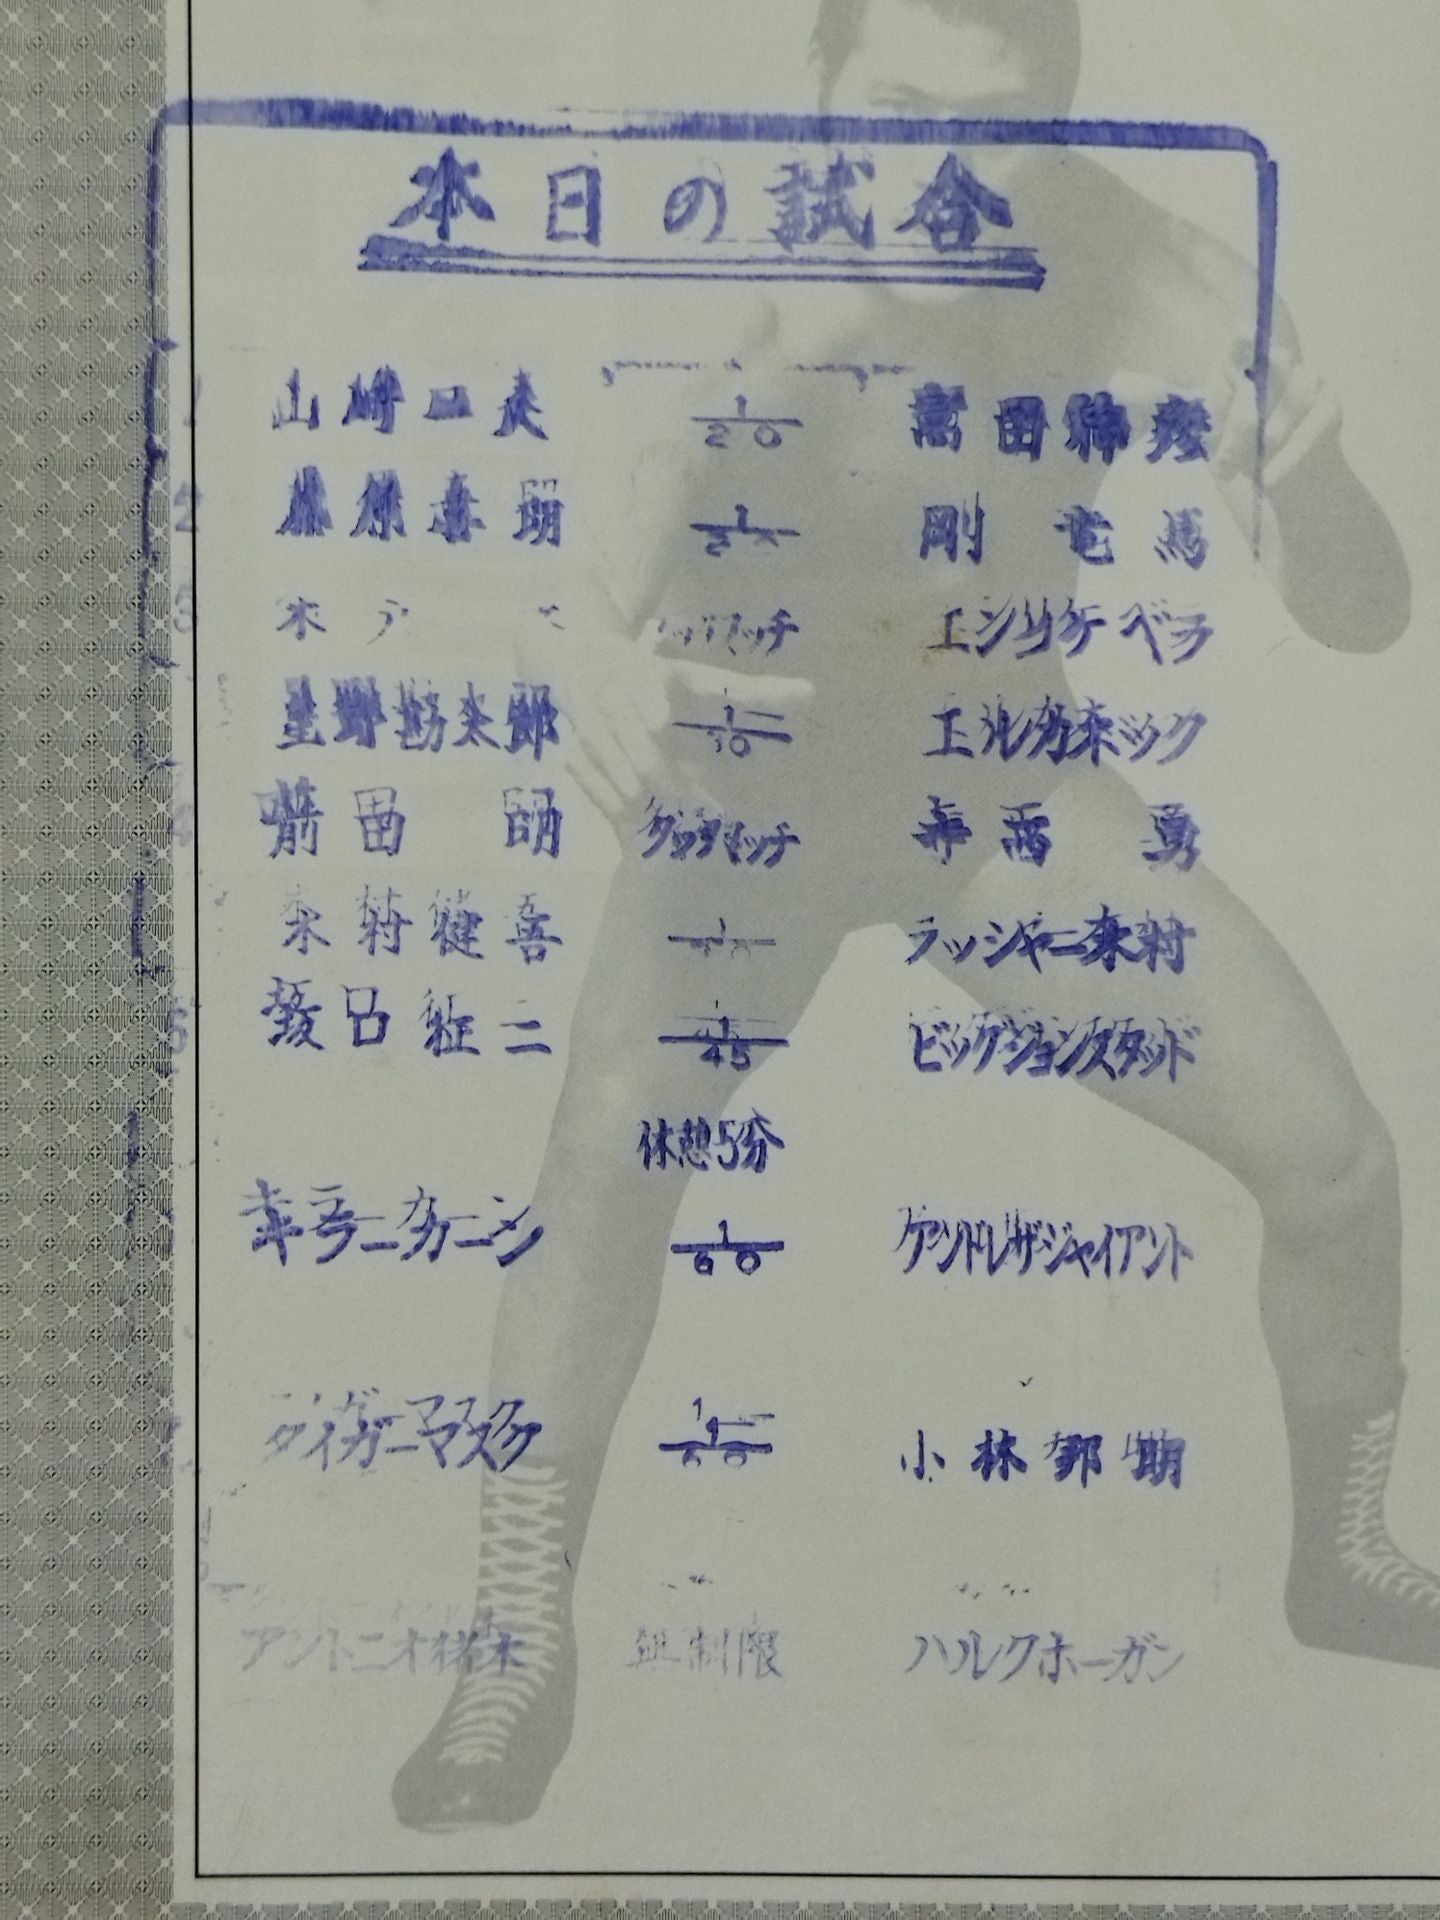 本日の試合
1 山崎一夫 1/20 高田伸彦
2 藤原喜明 1/2 剛竜馬
3 タッグマッチ エンリケベラ
星野勘太郎 1/30 エルカネック
4 前田明 タッグマッチ 寺西勇
木村健吾 1 ラッシャー木村
5 坂口征二 1/45 ビッグジョンスタッド
休憩5分
キラーカーン 1/60 アンドレザジャイアント
タイガーマスク 1/60 小林邦明
アントニオ猪木 無制限 ハルクホーガン